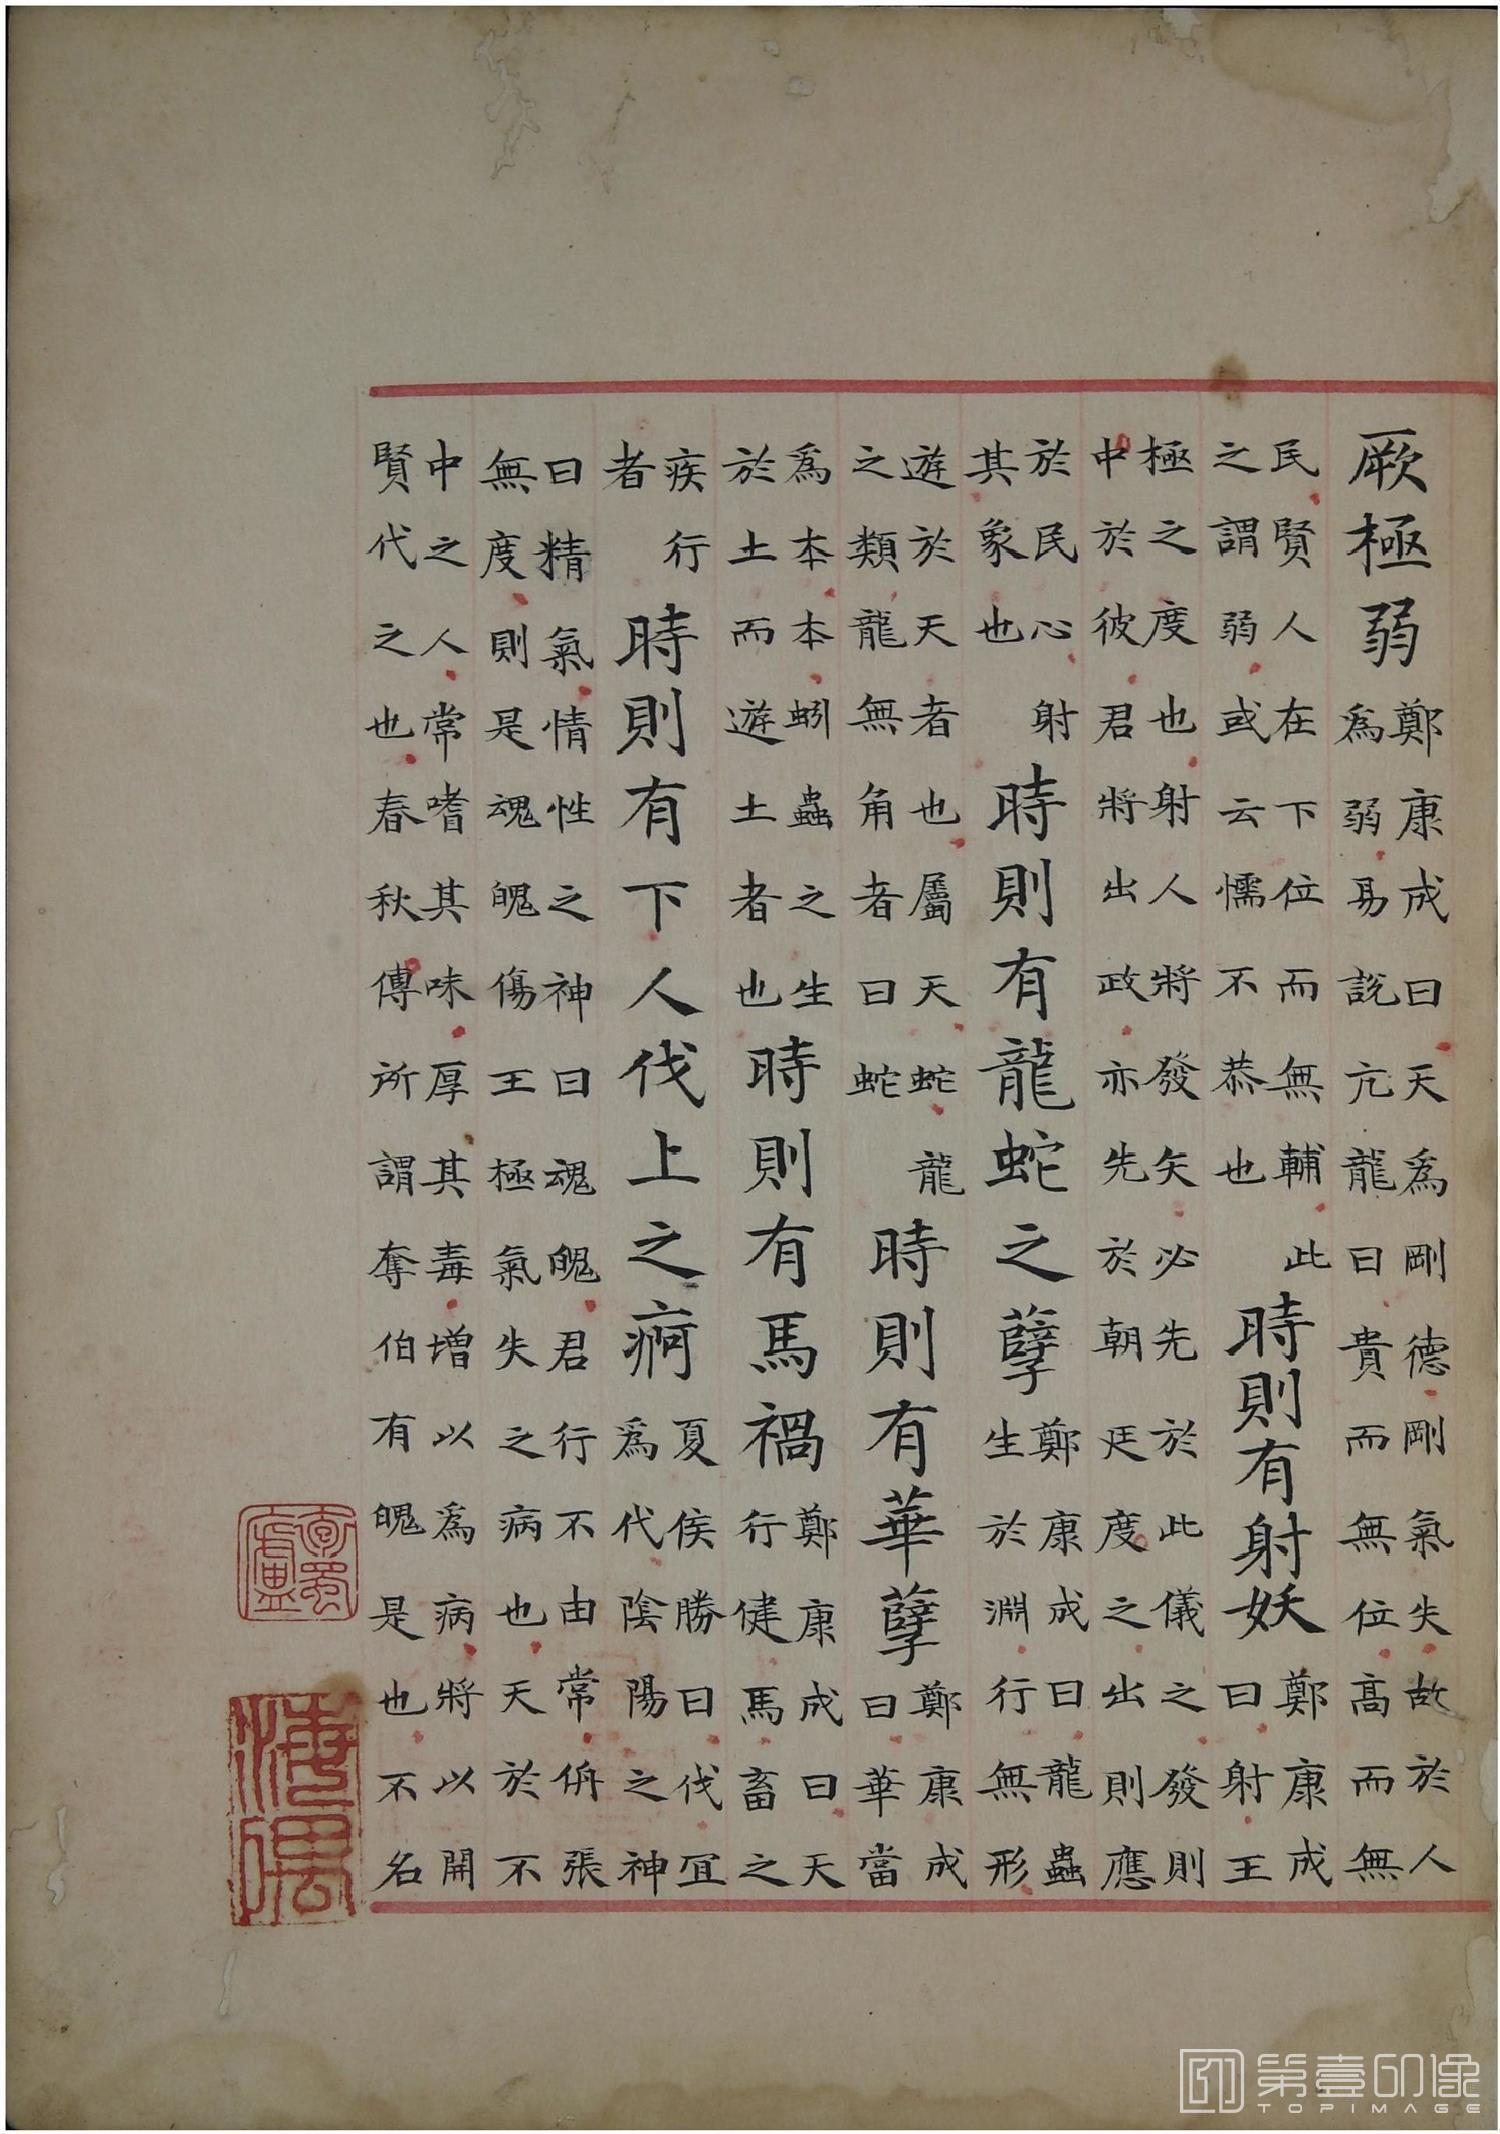 厥極弱鄭康成曰天爲剛德剛氣失故於人爲弱易說亢龍曰貴而無位高而無
民賢人在下位而無輔此之謂弱或云懦不恭也時則有射妖鄭康成曰射王
極之度也射人將發矢必先於此儀之發則中於彼君將出政亦先於朝廷度之出則應
於民心射其象也時則有龍蛇之孽鄭康成曰龍蟲生於淵行無形
遊於天者也屬天蛇龍之類龍無角者曰蛇時則有華孽鄭康成曰華當
爲本本蚓蟲之生於土而遊土者也時則有馬禍鄭康成曰天行健馬畜之
疾行者時則有下人伐上之痾夏侯勝曰伐冝爲代陰陽之神
曰精氣情性之神曰魂魄君行不由常侜張無度則是魂魄傷王極氣失之病也天於不
中之人常嗜其味厚其毒增以爲病將以開賢代之也春秋傳所謂奪伯有魄是也不名
第壹印像
TOPIMAGE